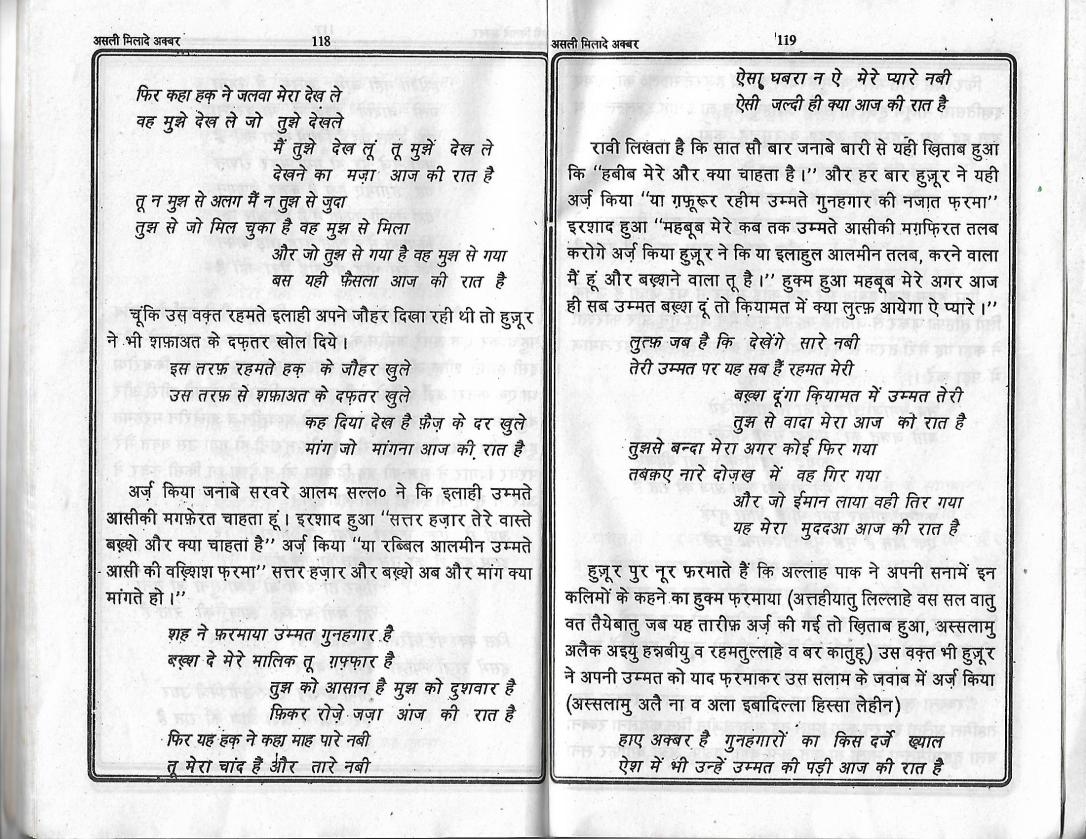 असली मिलादे अक्बर 118
फिर कहा हक़ ने जलवा मेरा देख ले
वह मुझे देख ले जो तुझे देखले
मैं तुझे देख लूं तू मुझें देख ले
देखने का मज़ा आज की रात है
तू न मुझ से अलग मैं न तुझ से जुदा
तुझ से जो मिल चुका है वह मुझ से मिला
और जो तुझ से गया है वह मुझ से गया
बस यही फ़ैसला आज की रात है
चूंकि उस वक़्त रहमते इलाही अपने जौहर दिखा रही थी तो हुज़ूर
ने भी शफ़ाअत के दफ़तर खोल दिये।
इस तरफ़ रहमते हक़ के जौहर खुले
उस तरफ़ से शफ़ाअत के दफ़तर खुले
कह दिया देख है फ़ैज़ के दर खुले
मांग जो मांगना आज की रात है
अर्ज़ किया जनाबे सरवरे आलम सल्ल० ने कि इलाही उम्मते
आसीकी मगफ़ेरत चाहता हूं। इरशाद हुआ “सत्तर हज़ार तेरे वास्ते
बख़्शे और क्या चाहता है” अर्ज़ किया “या रब्बिल आलमीन उम्मते
आसी की वख़्शिश फ़रमा” सत्तर हज़ार और बख़्शे अब और मांग क्या
मांगते हो।”
शह ने फ़रमाया उम्मत गुनहगार है
बख़्श दे मेरे मालिक तू ग़फ़्फ़ार है
तुझ को आसान है मुझ को दुशवार है
फ़िकर रोज़े जज़ा आज की रात है
फिर यह हक़ ने कहा माह पारे नबी
तू मेरा चांद है और तारे नबी
असली मिलादे अक्बर 119
ऐसा घबरा न ऐ मेरे प्यारे नबी
ऐसी जल्दी ही क्या आज की रात है
रावी लिखता है कि सात सौ बार जनाबे बारी से यही ख़िताब हुआ
कि “हबीब मेरे और क्या चाहता है।” और हर बार हुज़ूर ने यही
अर्ज़ किया “या ग़फ़ूरूर रहीम उम्मते गुनहगार की नजात फ़रमा”
इरशाद हुआ “महबूब मेरे कब तक उम्मते आसीकी मग़फ़िरत तलब
करोगे अर्ज़ किया हुज़ूर ने कि या इलाहुल आलमीन तलब, करने वाला
मैं हूं और बख़्शने वाला तू है।” हुक्म हुआ महबूब मेरे अगर आज
ही सब उम्मत बख़्श दूं तो कियामत में क्या लुत्फ़ आयेगा ऐ प्यारे।”
लुत्फ़ जब है कि देखेंगे सारे नबी
तेरी उम्मत पर यह सब हैं रहमत मेरी
बख़्श दूंगा कियामत में उम्मत तेरी
तुझ से वादा मेरा आज की रात है
तुझसे बन्दा मेरा अगर कोई फिर गया
तबक़ए नारे दोज़ख़ में वह गिर गया
और जो ईमान लाया वही तिर गया
यह मेरा मुददआ आज की रात है
हुज़ूर पुर नूर फ़रमाते हैं कि अल्लाह पाक ने अपनी सनामें इन
कलिमों के कहने का हुक्म फ़रमाया (अत्तहीयातु लिल्लाहे वस सल वातु
वत तैयेबातु जब यह तारीफ़ अर्ज़ की गई तो ख़िताब हुआ, अस्सलामु
अलैक अइयु हन्नबीयु व रहमतुल्लाहे व बर कातुहू) उस वक़्त भी हुज़ूर
ने अपनी उम्मत को याद फ़रमाकर उस सलाम के जवाब में अर्ज़ किया
(अस्सलामु अलै ना व अला इबादिल्ला हिस्सा लेहीन)
हाए अक्बर है गुनहगारों का किस दर्जे ख़्याल
ऐश में भी उन्हें उम्मत की पड़ी आज की रात है